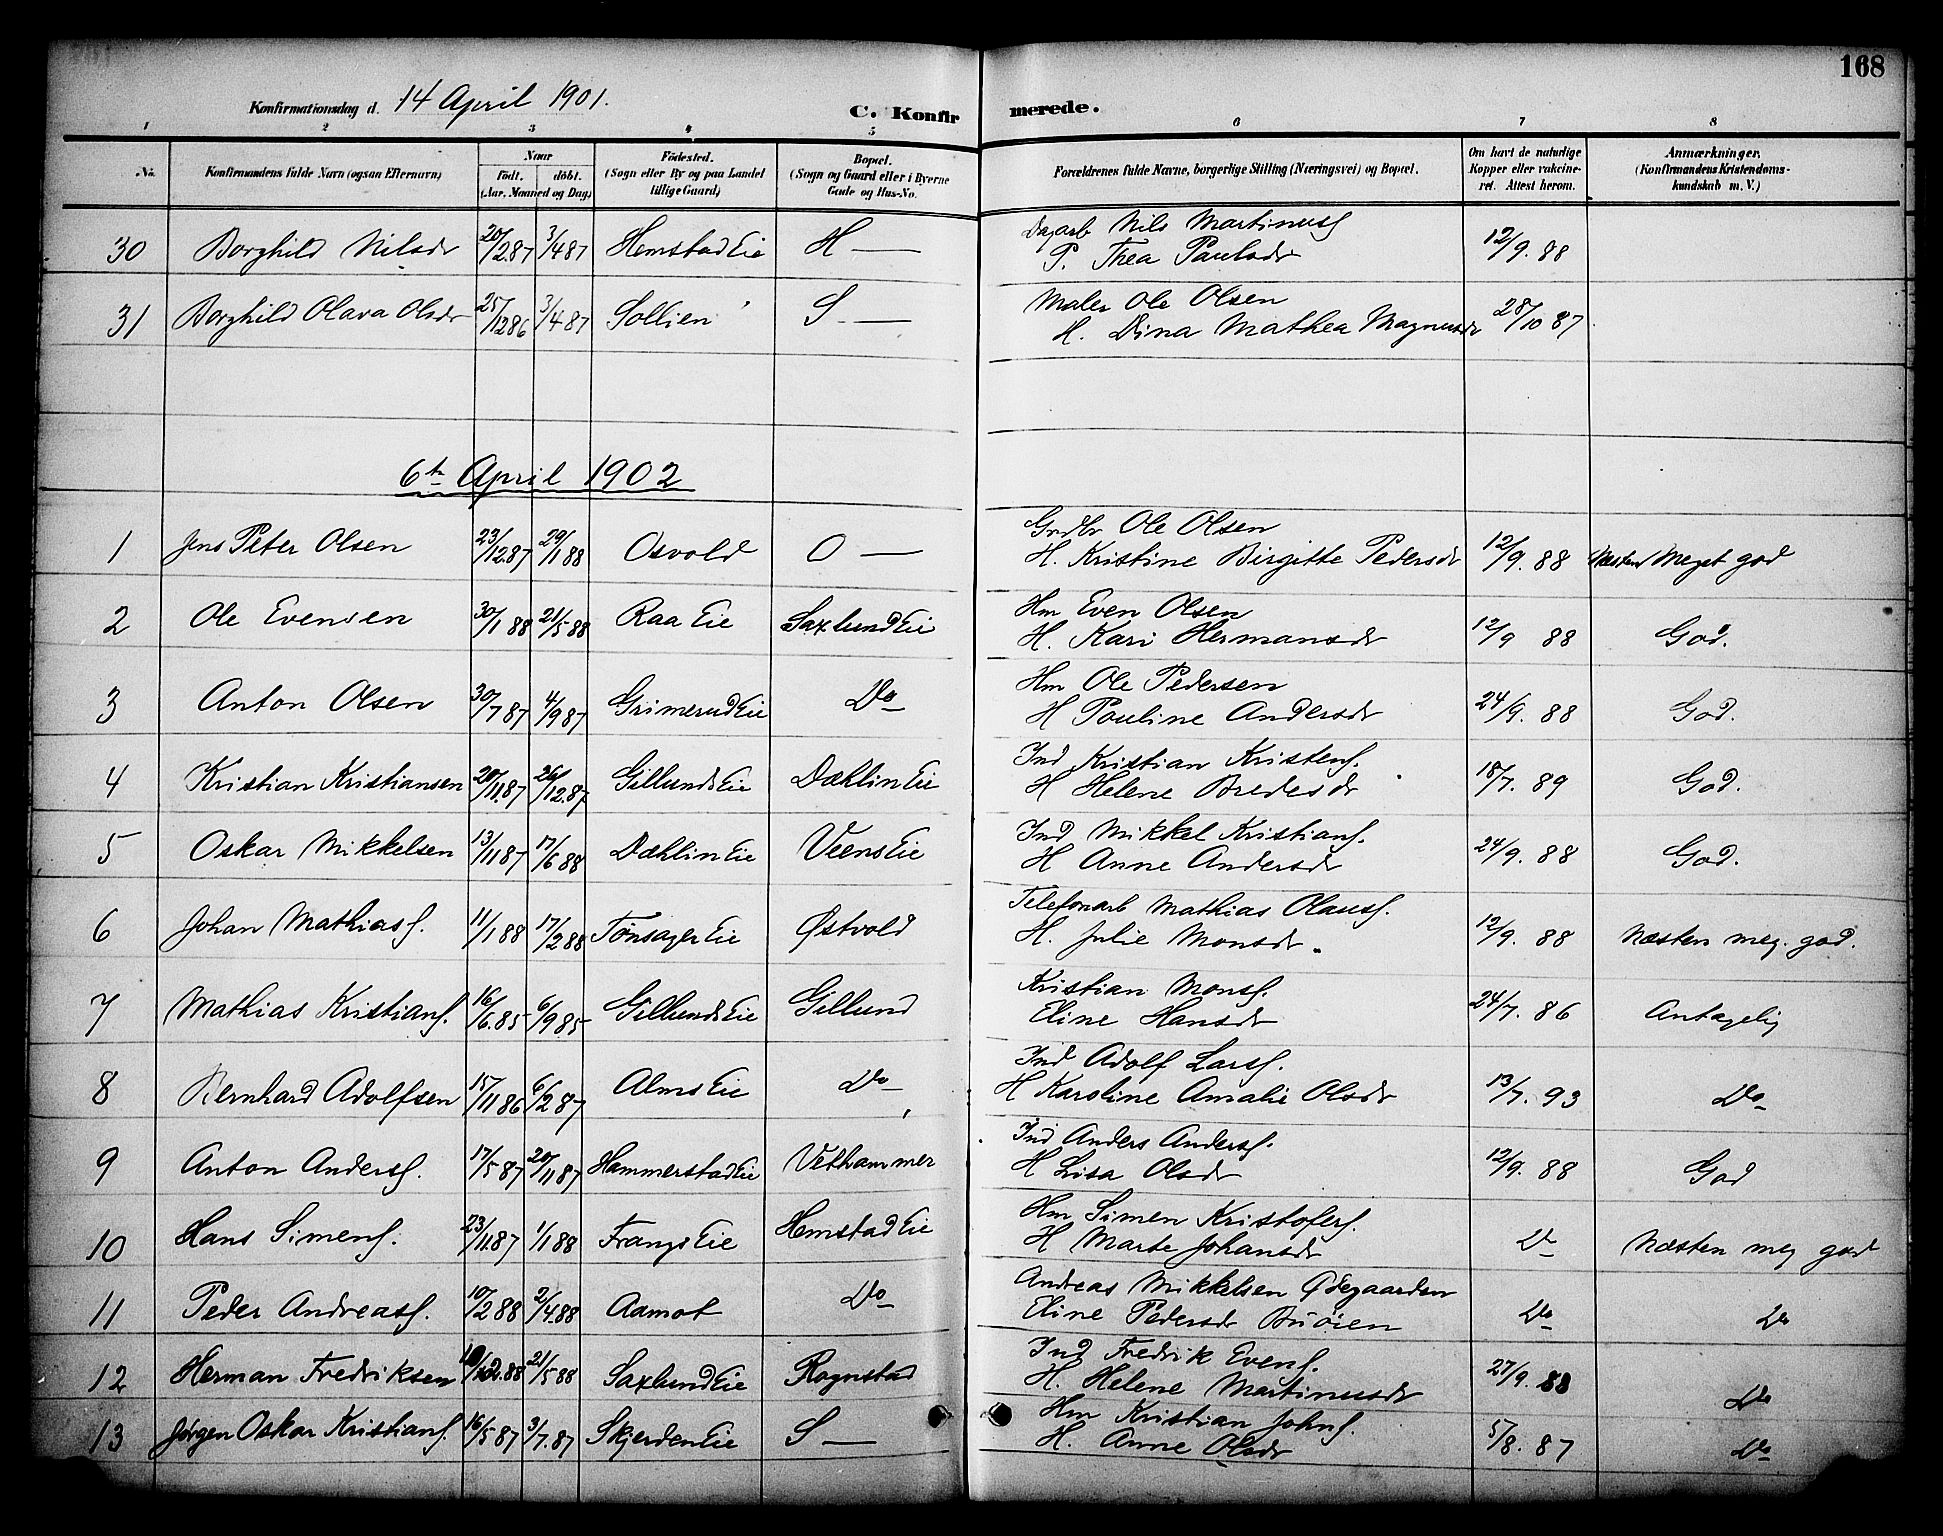 168
Konfirmationsdag d. 14 April 1901.
C. Konfirmerede.
1 2 3 4 5 6 7 8
No.
Konfirmandens fulde Navn (ogsaa Efternavn)
Naar
født. døbt.
(Aar, Maaned og Dag)
Fødested.
(Sogn eller By og paa Landet
tillige Gaard)
Bopæl.
(Sogn og Gaard eller i Byerne
Gade og Hus-No.
Forældrenes fulde Navne, borgerlige Stilling (Næringsvei) og Bopæl.
Om havt de naturlige
Kopper eller vakcine-
ret. Attest herom.
Anmærkninger.
(Konfirmandens Kristendoms-
kundskab m. V.)
30 Borghild Nilsdr 20/2.87 3/4 87 Hemstad Eie H — Dagarb Nils Martinusf 12/9. 88
P. Thea Paulsdr
31 Borghild Olava Olsdr 25/12 86 3/4 87 Sollien S — Maler Ole Olsen 28/10 87
H. Dina Mathea Magnusdr
6te April 1902
1 Jens Peter Olsen 23/12.87 29/1 88 Osvold O — Grdbr Ole Olsen 12/9. 88 Næsten Meget god
H. Kristine Birgitte Pedersdr
2 Ole Evensen 30/1 88 21/5 88 Raa Eie Saxlund Eie Hm Even Olsen 12/9 88 God.
H. Kari Hermansdr
3 Anton Olsen 30/7 87 4/9 87 Grimerud Eie Do Hm Ole Pedersen 24/9. 88 God.
H Pauline Andersdr
4 Kristian Kristiansen 20/11.87 26/12.87 Gillunds Eie Dæhlin Eie Ind Kristian Kristenf. 18/7. 89 God.
H Helene Bredesdr
5 Oskar Mikkelsen 13/11 87 17/6 88 Dæhlin Eie Veens Eie Ind Mikkel Kristianf. 24/9. 88 God.
H Anne Andersdr
6 Johan Mathiasf. 11/1 88 17/2 88 Tønsager Eie Østvold Telefonarb Mathias Olausf. 12/9. 88 Næsten meg. god.
H. Julie Monsdr.
7 Mathias Kristianf. 16/6.85 6/9 85 Gillunds Eie Gillund Kristian Monsf. 24/7. 86 Antagelig
Eline Hansdr
8 Bernhard Adolfsen 15/11 86 6/2 87 Alms Eie Do Ind Adolf Larsf. 13/7. 93 Do
H Karoline Amalie Olsdr
9 Anton Andersf. 17/5 87 20/11 87 Hammerstad Eie Vethammer Ind Anders Andersf. 12/9. 88 God
H Lisa Olsdr
10 Hans Simenf. 23/11.87 1/1 88 Frangs Eie Hemstad Eie Hm Simen Kristoferf. Do Næsten meg god
H Marte Johansdr
11 Peder Andreasf. 10/2 88 2/4.88 Aamot Do Andreas Mikkelsen Ødegaarden Do Do
Eline Pedersdr Buøien
12 Herman Fredriksen 2.88 21/5 88 Saxlund Eie Rognstad Ind Fredrik Evenf. 27/9. 88 Do
H. Helene Martinusdr
13 Jørgen Oskar Kristianf. 16/5 87 3/7.87 Skjerden Eie S — Hm Kristian Johnf. 5/8. 87 Do
H. Anne Olsdr